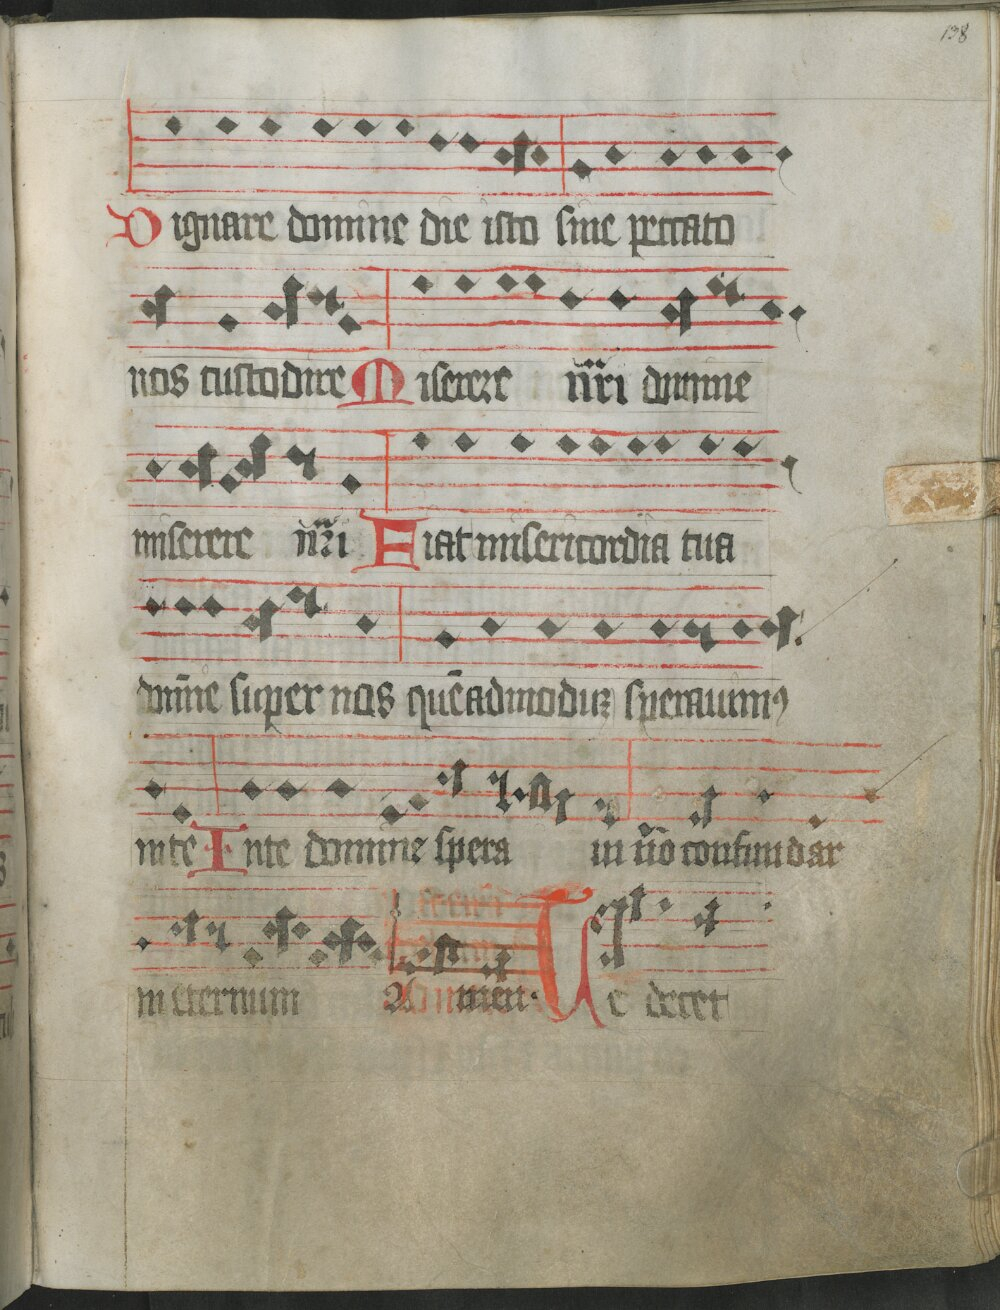 138
Dignare domine die isto sine peccato
nos custodire Miserere nr̄i domine
miserere nr̄i Fiat misericordia tua
domīe super nos quēadmoduꝫ sperauimꝰ
inte Inte domine spera ui nō confundar
in eternum Amen. Te decet